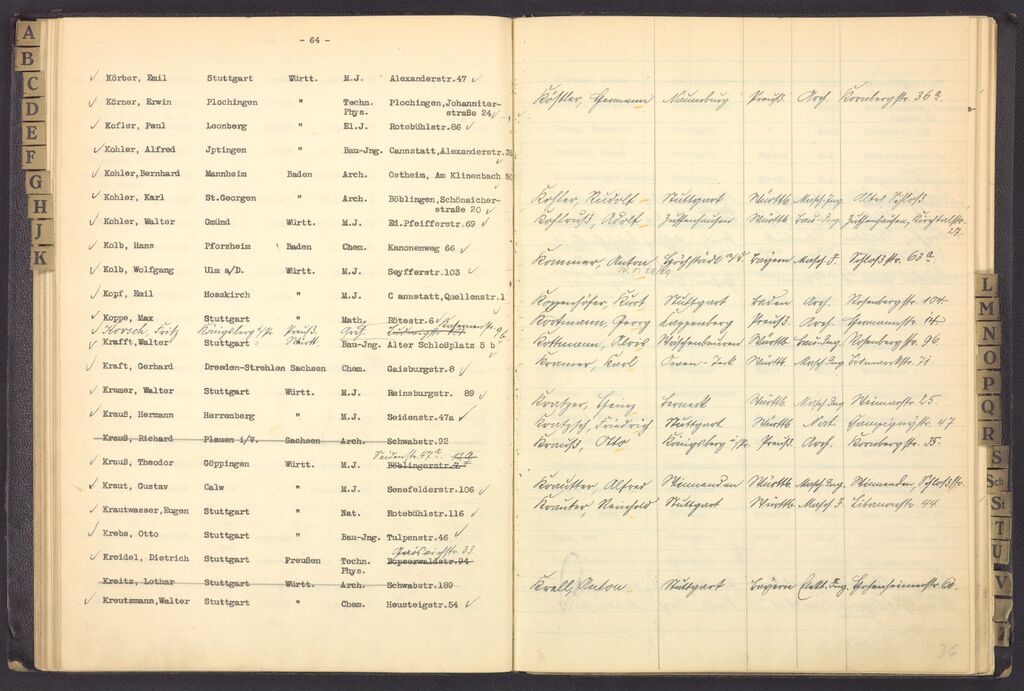 - 64 -
Körber, Emil Stuttgart Württ. M.J. Alexanderstr.47
Körner, Erwin Plochingen " Techn. Phys. Plochingen,Johanniter-
straße 24
Kofler, Paul Leonberg " El.J. Rotebühlstr.86
Kohler, Alfred Jptingen " Bau-Jng. Cannstatt,Alexanderstr.
Kohler,Bernhard Mannheim Baden Arch. Ostheim, Am Klinenbach 50
Kohler, Karl St.Georgen " Arch. Böblingen,Schönaicher-
straße 20
Kohler, Walter Gmünd Württ. M.J. Ed.Pfeifferstr.69
Kolb, Hans Pforzheim Baden Chem. Kanonenweg 66
Kolb, Wolfgang Ulm a/D. Württ. M.J. Seyfferstr.103
Kopf, Emil Hosskirch " M.J. C annstatt,Quellenstr.1
Koppe, Max Stuttgart " Math. Rötestr.6
Korsch, Fritz Königsberg i/Pr. Preuß.
Krafft,Walter Stuttgart Württ. Bau-Jng. Alter Schloßplatz 5 b
Kraft, Gerhard Dresden-Strehlen Sachsen Chem. Gaisburgstr.8
Kramer, Walter Stuttgart Württ. M.J. Reinsburgstr. 89
Krauß, Hermann Herrenberg " M.J. Seidenstr.47a
Krauß, Richard Plauen i/V. Sachsen Arch. Schwabstr.92
Seidenstr. 47a
Krauß, Theodor Göppingen Württ. M.J. Böblingerstr.
Kraut, Gustav Calw " M.J. Senefelderstr.106
Krautwasser,Eugen Stuttgart " Nat. Rotebühlstr.116
Krebs, Otto Stuttgart " Bau-Jng. Tulpenstr.46
Kreidel, Dietrich Stuttgart Preußen Techn. Phys. Hopserwaldstr.94
Kreitz, Lothar Stuttgart Württ. Arch. Schwabstr.189
Kreutzmann,Walter Stuttgart " Chem. Heusteigstr.54
Köstler, Hermann Naumburg Preuß. Arch. Kornbergstr. 36a
Kohler, Rudolf Stuttgart Württb. Masch.Ing. Altes Schloß
Kohlruß, Adolf Zuffenhausen Württb. Bau-Ing. Zuffenhausen,
27.
Kommer, Anton Höchstädt a/d. Bayern Masch.I. Schloßstr. 63a
Koppenhöfer, Kurt Stuttgart Baden Arch. Rosenbergstr. 104
Kortmann, Georg Kappenberg Preuß. Arch. Hermannstr. 14
Kottmann, Alois Württb. Bau-Ing. Rosenbergstr. 96
Krammer, Karl Owen-Teck Württb. Masch.Ing. Bismarckstr. 71
Kratzer, Heinz Berneck Württb. Masch.Ing. Weimarstr. 25
Kratzsch, Friedrich Stuttgart Württb. Nat. 47
Krauß, Otto Königsberg i/Pr. Preuß. Arch. Kornbergstr. 35
Krautter, Alfred Winnenden Württb. Masch.Ing. Winnenden, Schloßstr.
Krauter, Reinhold Stuttgart Württb. Masch.I. Libanonstr. 44
Krell, Anton Stuttgart Bayern Elekt.Ing.
36
A
B
C
D
E
F
G
H
J
K
L
M
N
O
P
Q
R
S
Sch
St
T
U
V